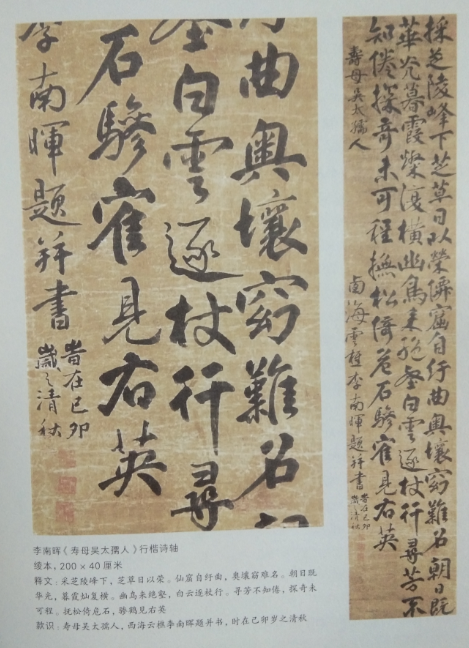 曲奥壤窈難名
壑白雲逐杖行尋
石驂寉見右英
李南暉題并書
旹在己卯
歲之清秋
採芝陵峰下芝草日以榮僊窟自紆曲奥壤窈難名朝日既
華光暮霞燦復橫幽鳥来絶壑白雲逐杖行尋芳不
知倦探奇未可程撫松倚危石驂寉見右英
壽母吴太孺人
海雲樵李南暉題并書
旹在己卯
歲之清秋
李南晖《寿母吴太孺人》行楷诗轴
绫本，200 × 40 厘米
释文：采芝陵峰下，芝草日以荣。仙窟自纡曲，奥壤窈难名。朝日既
华光，暮霞灿复横。幽鸟来绝壑，白云逐杖行。寻芳不知倦，探奇未
可程。抚松倚危石，骖鹤见右英
款识：寿母吴太孺人，西海云樵李南晖题并书，时在己卯岁之清秋